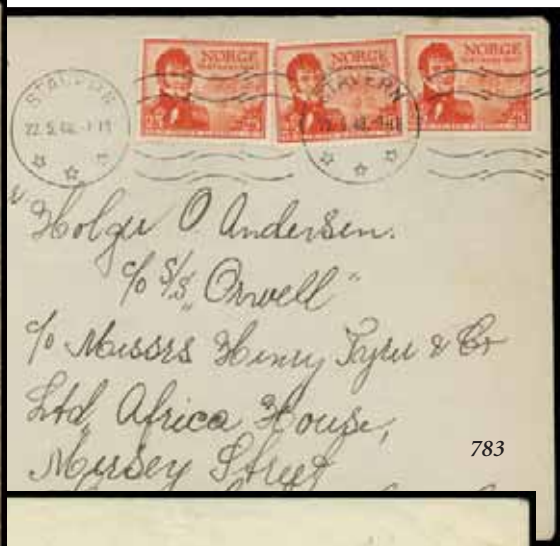 NORGE NORGE NORGE
25 25 25
STAVERN STAVERN
22.5.48.
Holger O Andersen.
c/o S/S „Orwell"
c/o Messrs Henry Tyrer & Co
Ltd, Africa House,
Mersey Street
783